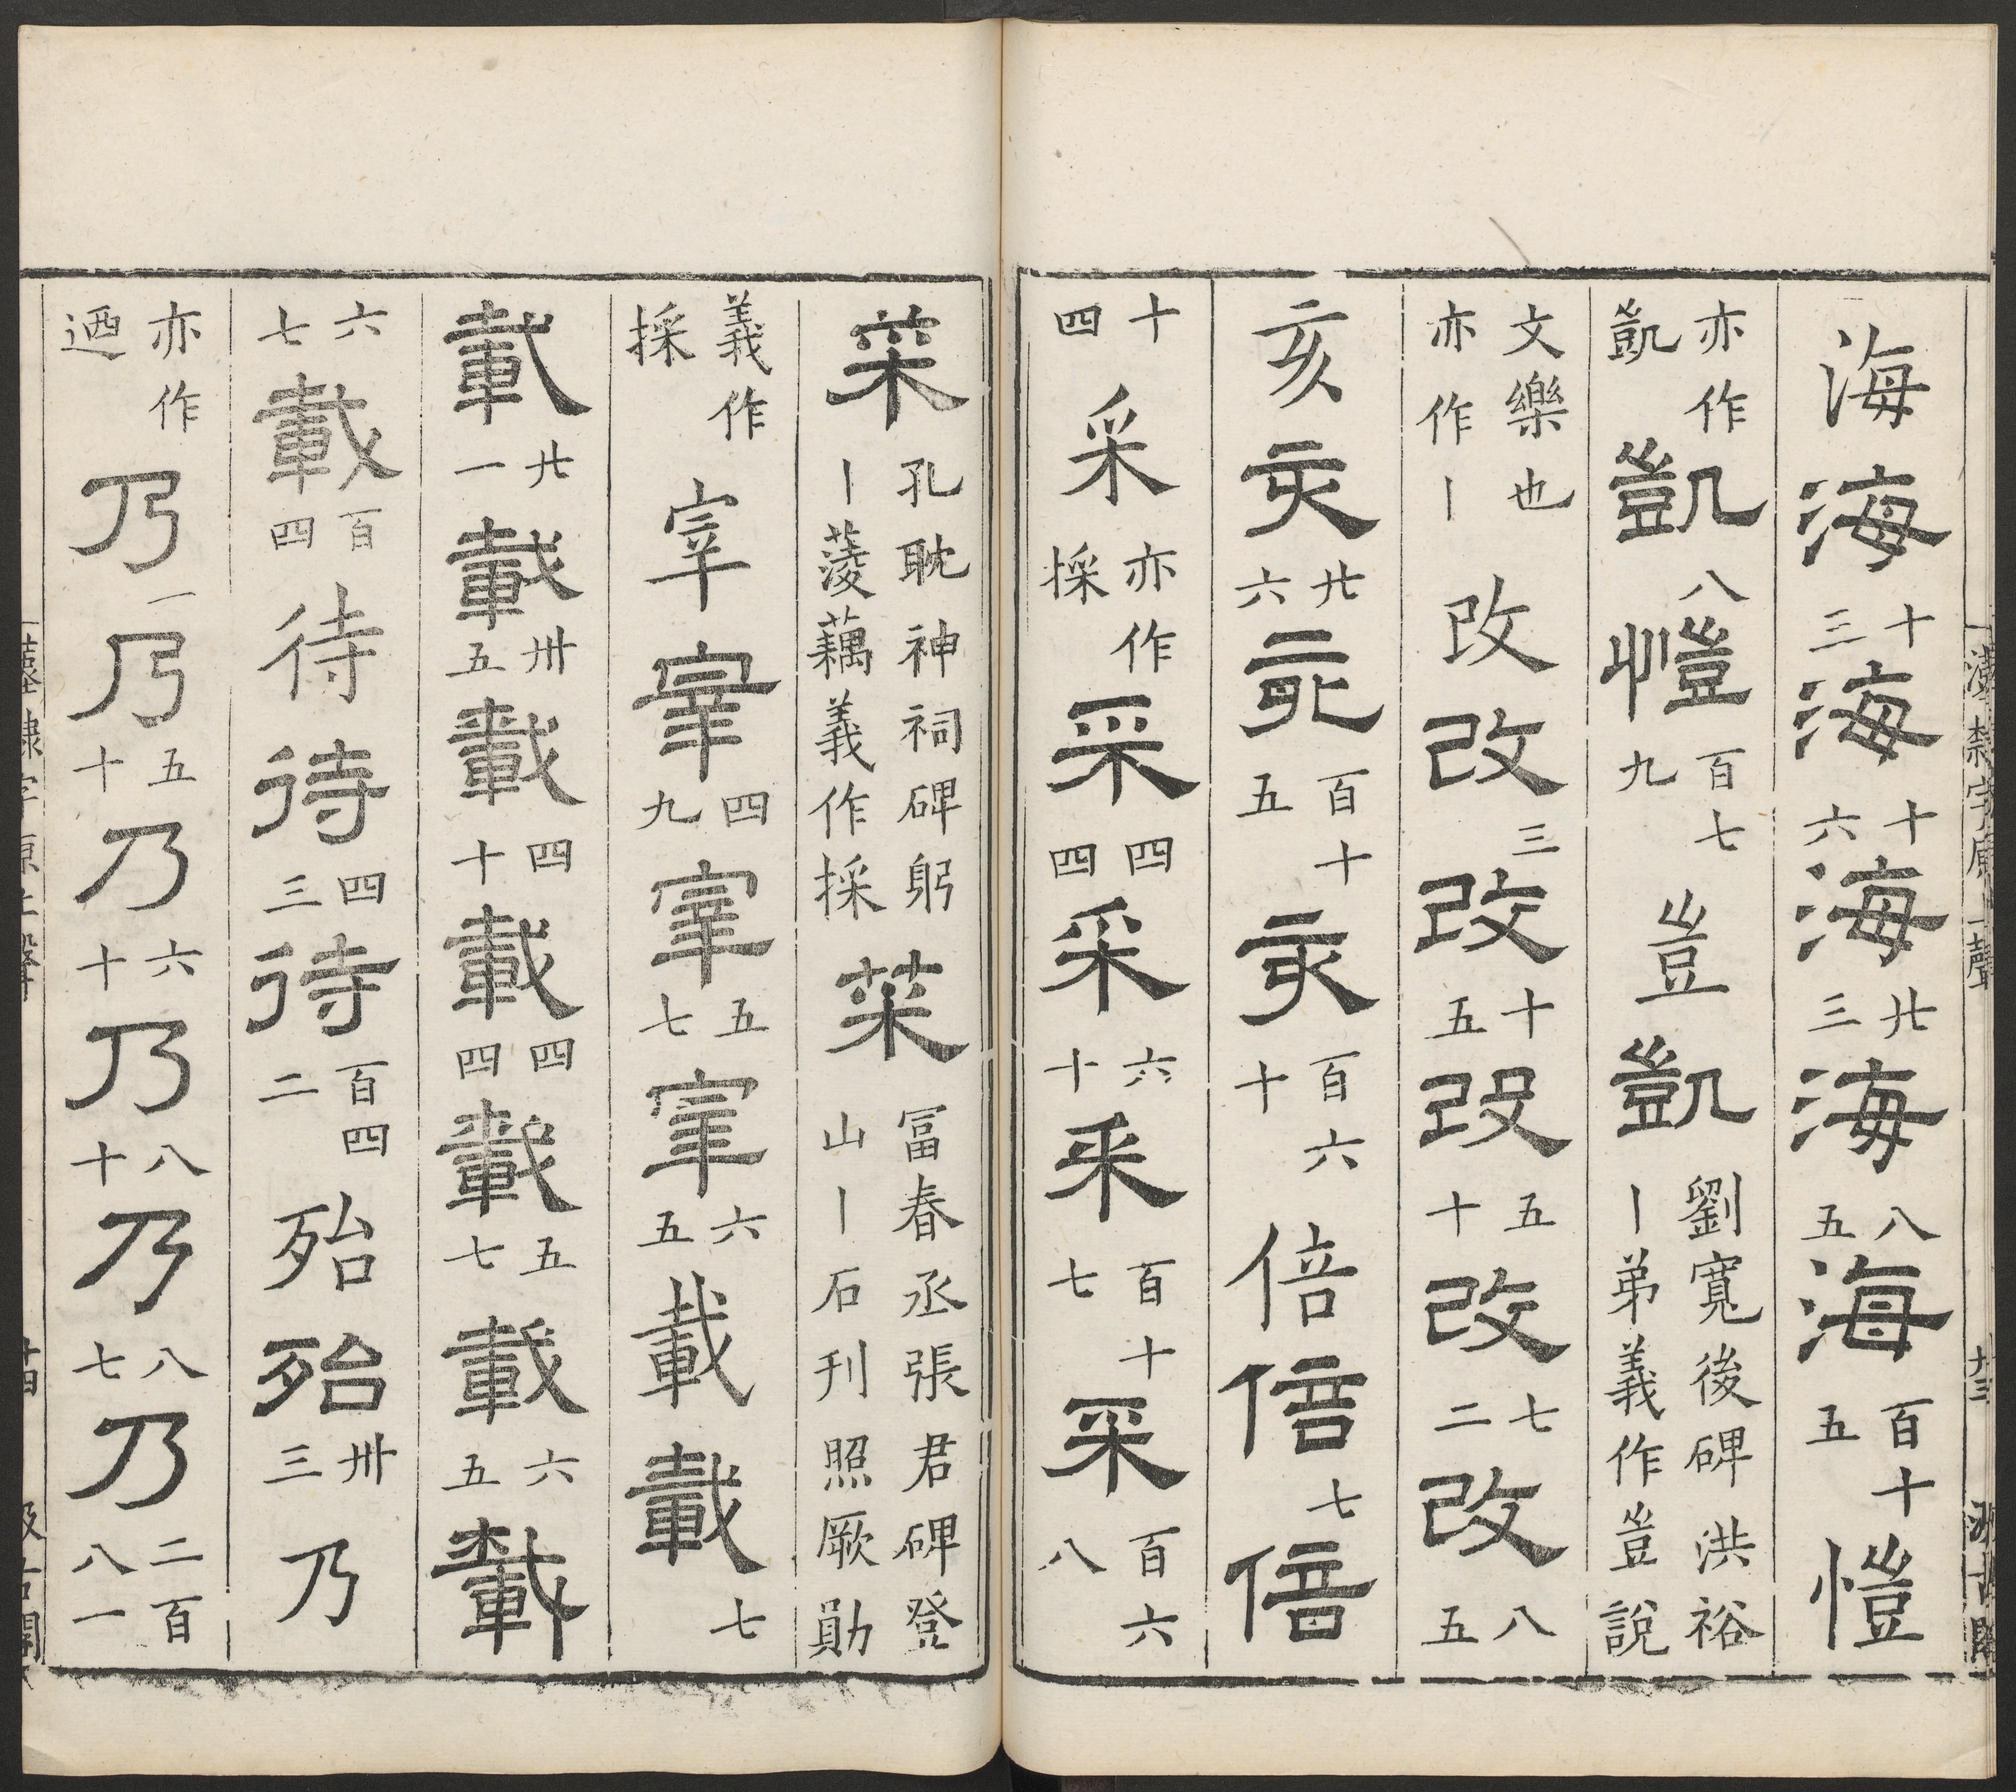 海海十三海十六海廿三海八五海百十五愷
亦作凱凱八愷百七九豈凱劉寬後碑洪裕丨弟義作豈說
文樂也亦作丨改改三改十五改五十改七二改八五
亥亥廿六亥百十五亥百六十倍倍七倍
十四采亦作採采四四采六十采百十七采百六八
菜孔耽神祠碑躬丨蔆藕義作採菜冨春丞張君碑登山丨石刋照厥勛
義作採宰宰四九宰五七宰六五載載七
載廿一載卅五載四十載四四載五七載六五載
六七載百四待待四三待百四二殆殆卅三乃
亦作迺乃一乃五十乃六十乃八十乃八七乃二百八一